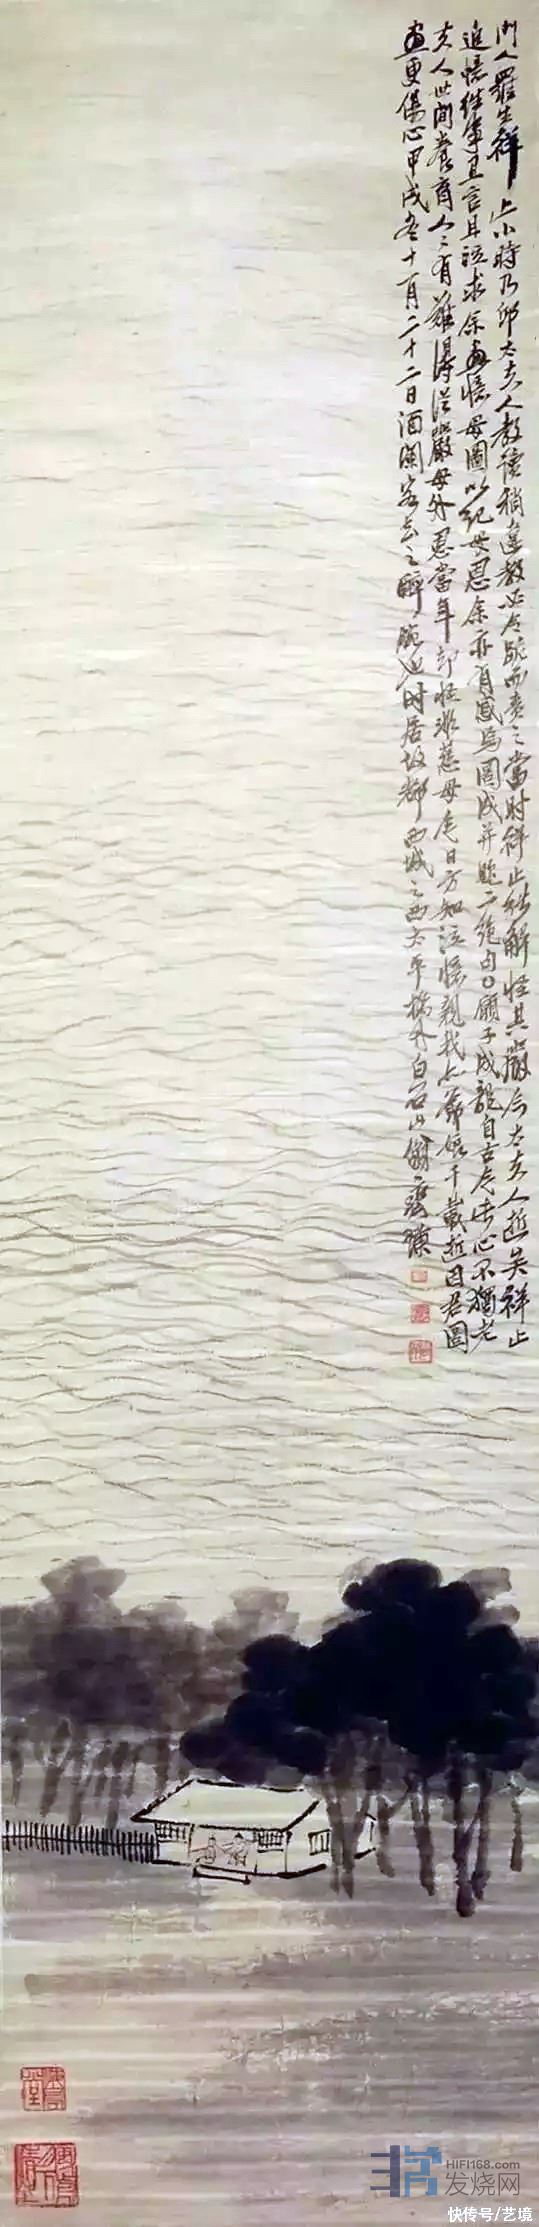 門人羅生祥止小時乃邱太夫人教讀稍違教必令跪而責之當時祥止能解怪其嚴今太夫人逝矣祥止
追憶往事且言且泣求余畫憶母圖以紀母恩余亦有感焉圖成并題二絕句願子成龍自古今此心不獨老
夫人世間養育人人有難得從嚴母外恩當年却怪非慈母今日方知泣憶親我亦爺娘千載逝因君圖
畫更傷心甲戌冬十一月二十二日酒闌客去之醉腕也時居故都西城之西太平橋外白石山翁齊璜
HIFI168.com
发烧网
快传号/艺境